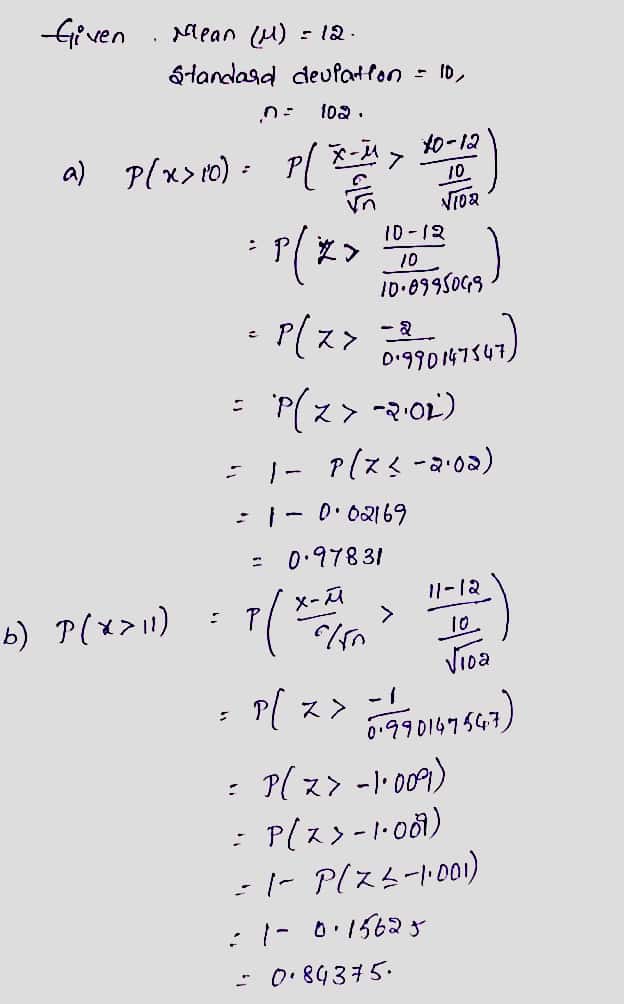 Given . Mean (μ) = 12.
Standard deviation = 10,
n = 102.
a) P(x>10) = P( (x̄-μ)/(σ/√n) > (10-12)/(10/√102) )
= P( Z > (10-12)/(10/10.0995049) )
= P( Z > -2/0.990147547 )
= P(Z > -2.02)
= 1 - P(Z ≤ -2.02)
= 1 - 0.02169
= 0.97831
b) P(x>11) = P( (x-μ̄)/(σ/√n) > (11-12)/(10/√102) )
= P( Z > -1/0.990147547 )
= P(Z > -1.009)
= P(Z > -1.009)
= 1- P(Z ≤ -1.001)
= 1 - 0.15625
= 0.84375.